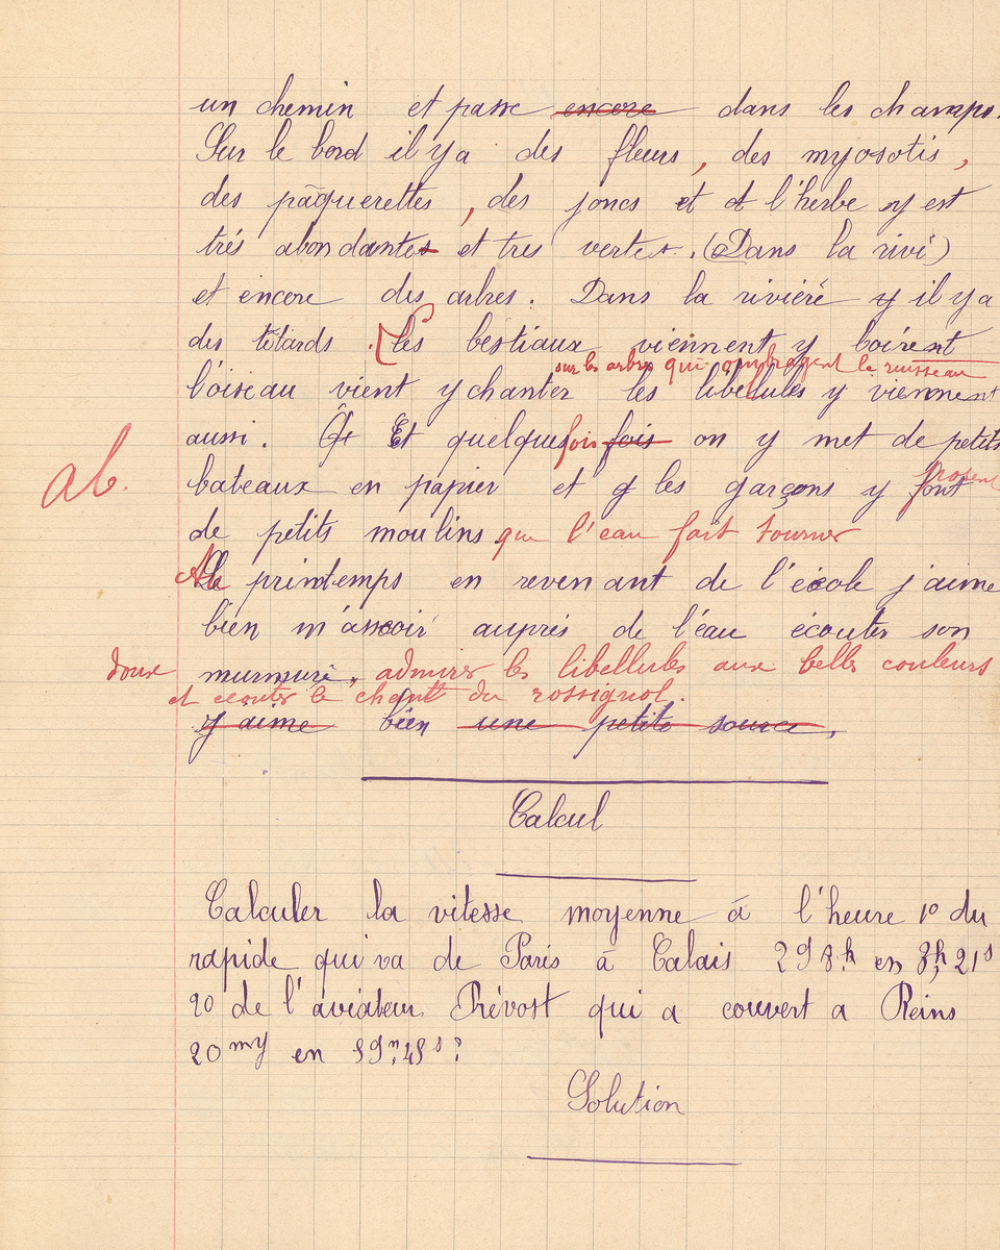 un chemin et passe encore dans les champs.
Sur le bord il y a des fleurs, des myosotis,
des pâquerettes, des joncs et et l'herbe y est
trés abondantes et tres vertes. (Dans la rivi)
et encore des arbres. Dans la riviére y il y a
des tétards. [Les bestiaux viennent y boirent
sur les arbres qui ombragent le ruisseau
l'oiseau vient y chanter les libellules y viennent
aussi. Et quelquefois fois on y met de petits
ab.
bateaux en papier et les garçons y font posent
de petits moulins que l'eau fait tourner
Au printemps en revenant de l'école j'aime
bien m'assoir auprés de l'eau écouter son
doux murmure, admirer les libellules aux belles couleurs
et ecouter le chant du rossignol.
J'aime bien une petite source,
Calcul
Calculer la vitesse moyenne à l'heure 1º du
rapide qui va de Paris à Calais 298k en 3h 21s
2º de l'aviateur Prévost qui a couvert a Reins
20 my en 59m 45s?
Solution